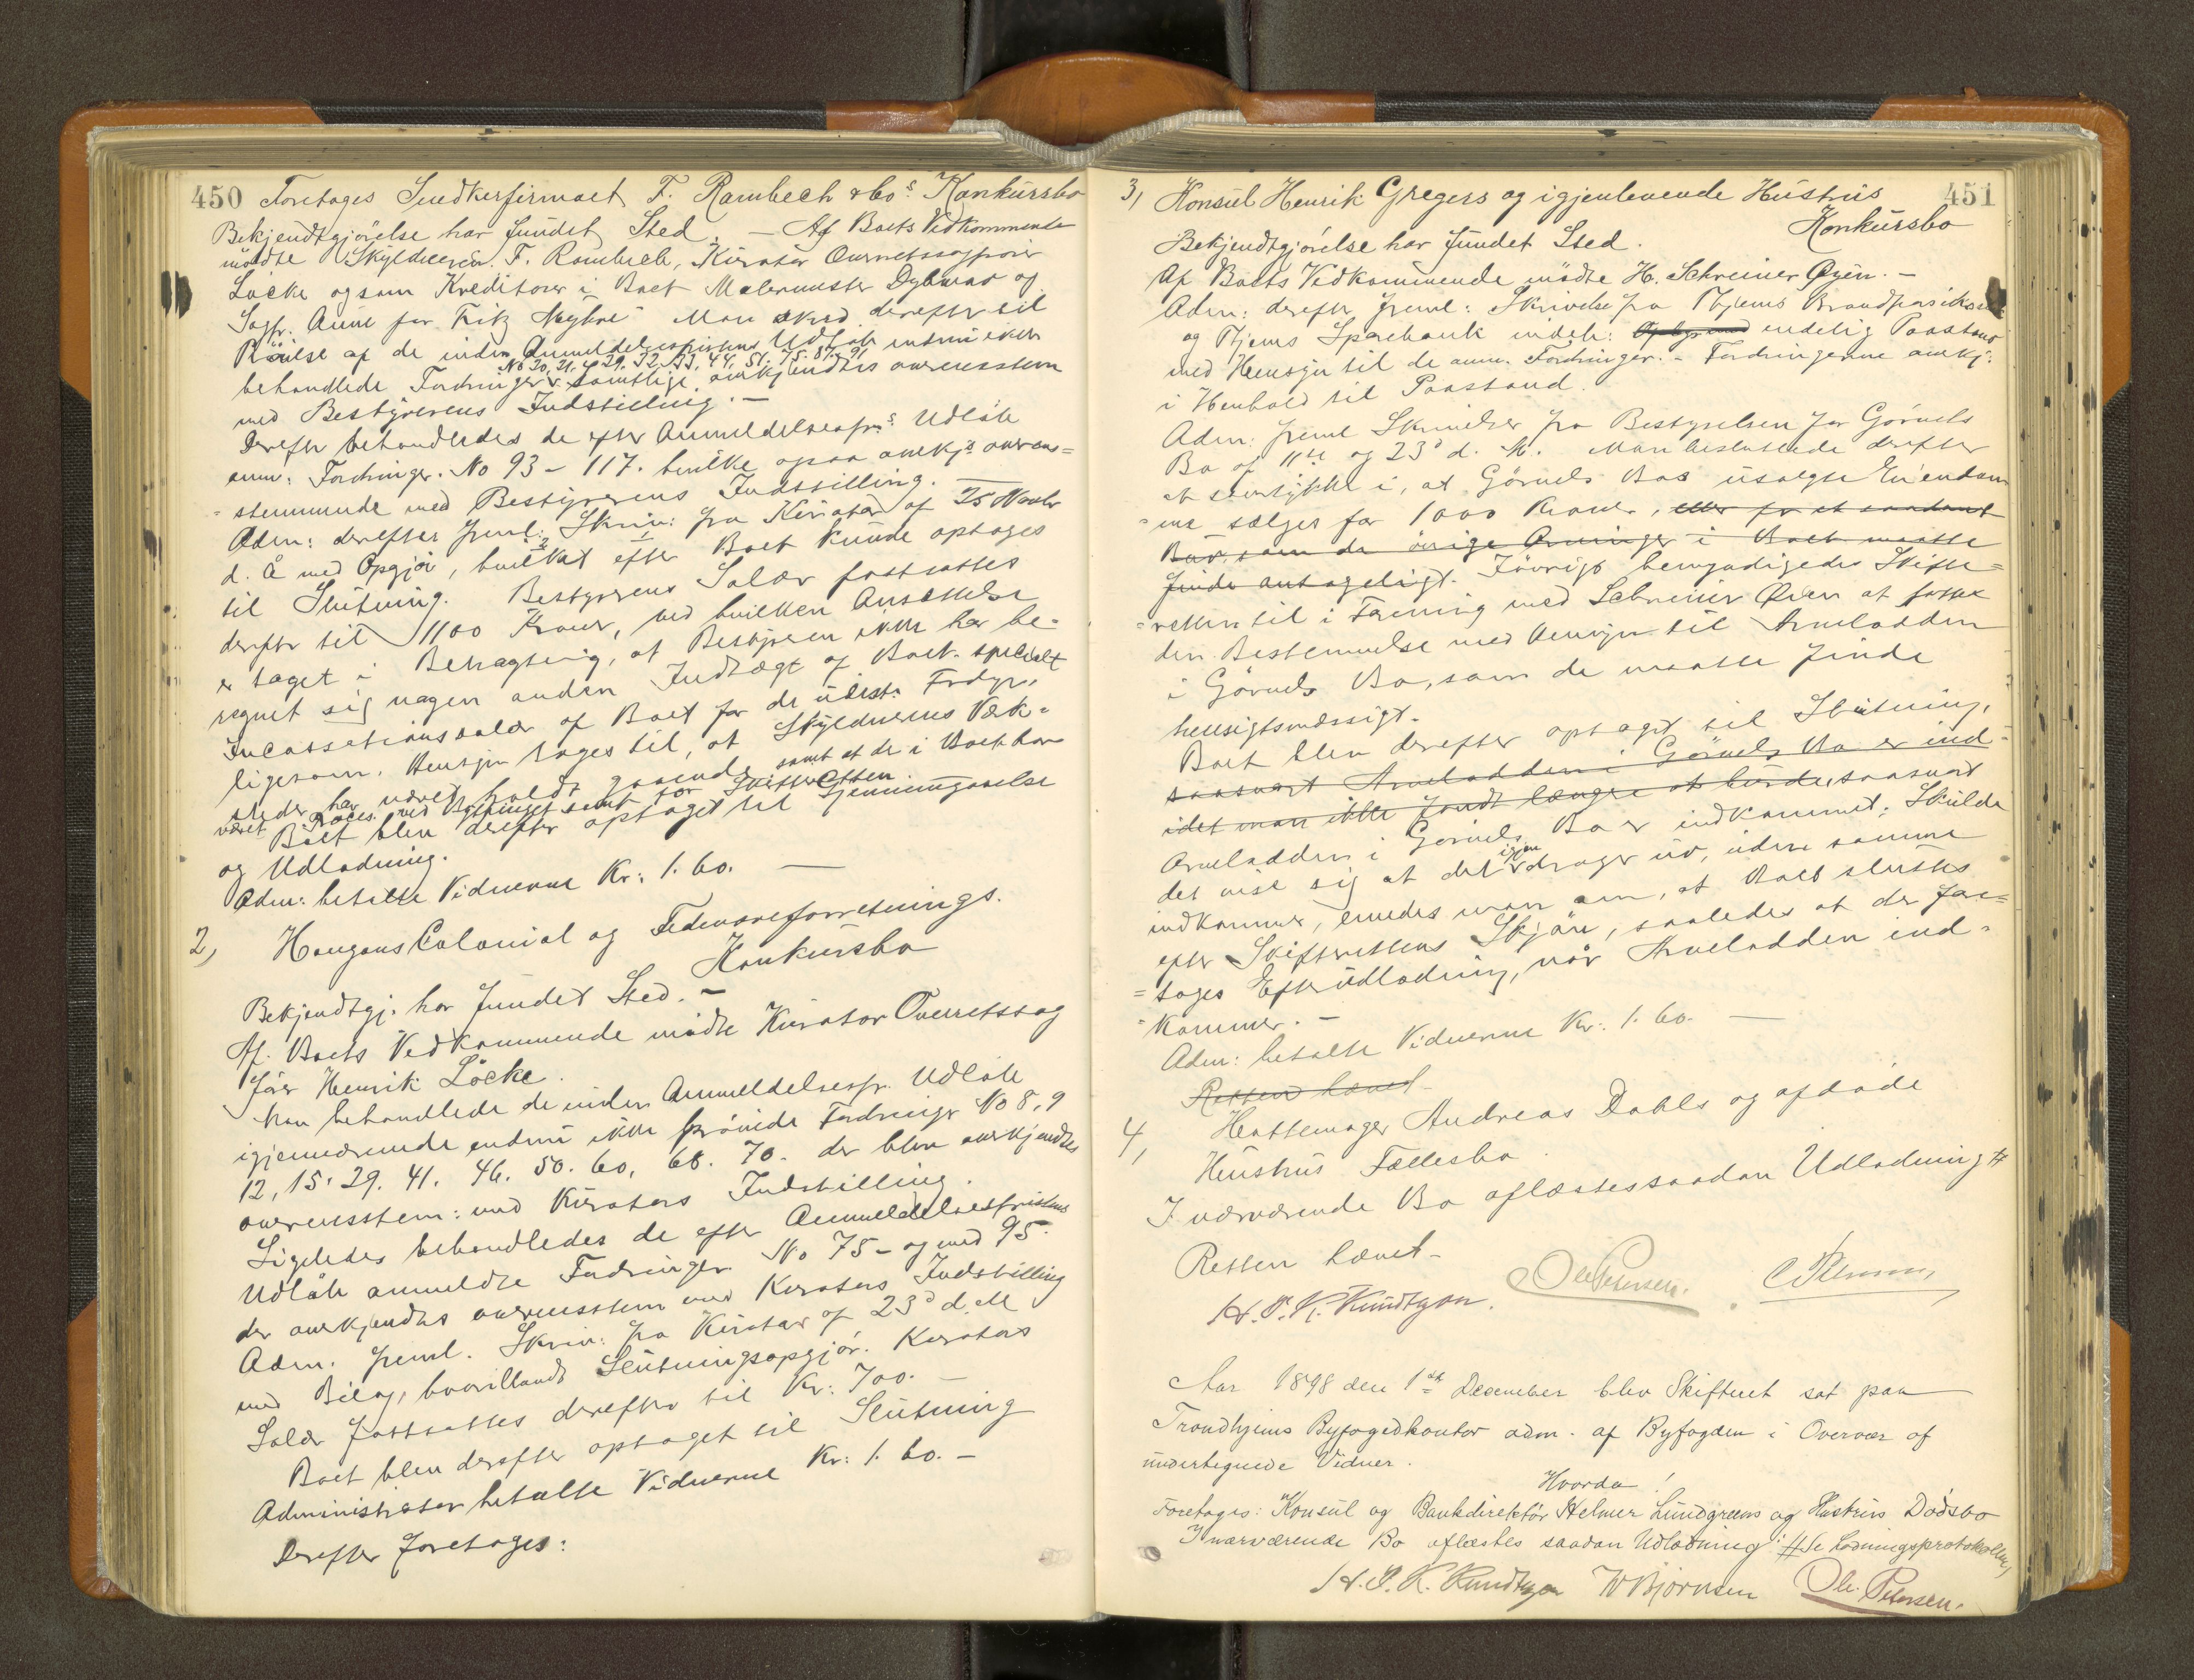 450 Foretages Snedkerfirmaet F. Rambech & Cos Konkursbo
Bekjendtgjörelse har fundet Sted. — Af Boets Vedkommende
mödte Skyldneren F. Rambech, Kurator Overretssagförer
Löcke og som Kreditorer i Boet Malermester Dybwad og
Sagfr. Aune for Fritz Man skred derefter til
Pröielse af de inden Anmeldelsesfristens Udlöb endnu ikke
No 20, 21, 29. 32. 33. 44. 51. 75. 87. 91
behandlede Fordringer. Samtlige anerkjendtes overensstem
med Bestyrerens Indstilling. —
Derefter behandledes de efter Anmeldelsesfrs Udlöb
anm: Fordringer. No 93 - 117. hvilke ogsaa anerkjs overens=
=stemmende med Bestyrerens Indstilling. —
Adm: derefter freml: Skriv: fra Kurator af 25 Novbr
d. Å med Opgjör, hvilket efter Boet kunde optages
til Slutning. Bestyrerens Salær fastsattes
derefter til 1100 Kroner, ved hvilken Ansættelse
er taget i Betragtning, at Bestyreren ikke har be=
regnet sig nogen anden Indtægt af Boet specielt
Incassationssalær af Boet for de udest. Fordgr,
ligesom Hensyn tages til, at Skyldnerens Værk=
steder har været holdt gaaende samt at der i Boet har
været Proces ved Bythinget samt for Skifteretten
Boet blev derefter optaget til Gjennemgaaelse
og Udlodning.
Adm: betalte Vidnerne Kr: 1.60. —
2, Haugans Colonial og Fedevareforretnings.
Konkursbo
Bekjendtgj. har fundet Sted. —
Af. Boets Vedkommende mödte Kurator Overretssag
förer Henrik Löcke.
Man behandlede de inden Anmeldelsesfr. Udlöb
igjenværende endnu ikke prövede Fordringer No 8, 9
12, 15. 29. 41. 46. 50. 60, 68. 70. der blev anerkjendtes
overensstem: med Kurators Indstilling.
Ligeledes behandledes de efter Anmeldelsesfristens
Udlöb anmeldte Fordringer No 75 - og med 95.
der anerkjendtes overensstem med Kurators Indstilling
Adm. freml. Skriv: fra Kurator af 23d d. M
med Bilag, hvoriblandt Slutningsopgjör. Kurators
Salær fastsattes derefter til Kr: 700. —
Boet blev derefter optaget til Slutning
Administrator betalte Vidnerne Kr: 1.60. —
Derefter foretages:
3, Konsul Henrik Gregers og igjenlevende Hustrus 451
Konkursbo
Bekjendtgjörelse har fundet Sted.
Af Boets Vedkommende mödte H. Schreiner Öyen. —
Adm: derefter freml: Skrivelse fra Thjems Brandforsikrings
og Thjems Sparebank indeh: endelig Paastand
med Hensyn til de anm. Fordringer. - Fordringerne anerkj:
i Henhold til Paastand.
Adm: freml Skrivelser fra Bestyrelsen for Görvels
Bo af 11te og 23d d. M. Man besluttede derefter
at samtykke i, at Görvels Bos usolgte Eiendom
=me sælges for 1000 Kroner, eller for et saadant
Bud, som de övrige Arvinger i Boet maatte
finde antageligt. Iövrigt bemyndigedes Skifte=
=retten til i Forening med Schreiner Öien at fatte
den Bestemmelse med Hensyn til Arvelodden
i Görvels Bo, som de maatte finde
hensigtsmæssigt.
Boet blev derefter optaget til Slutning,
saasnart Arvelodden i Görvels Bo er ind=
idet man ikke fandt længere at burde, saasnart
Arvelodden i Görvels Bo er indkommet; Skulde
det vise sig at det igjen drager ud, uden samme
indkommer, enedes man om, at Boet sluttes
efter Skifterettens Skjön, saaledes at der fore=
=tages Efterudlodning, når Arvelodden ind=
=kommer. —
Adm: betalte Vidnerne Kr: 1.60. —
Retten hævet
4, Hattemager Andreas Dahls og afdöde
Hustrus Fællesbo.
I nærværende Bo aflæstes saadan Udlodning #
Retten hævet —
H. P. K. Knudtzon. Ole Petersen.
Aar 1898 den 1ste December blev Skifteret sat paa
Trondhjems Byfogedkontor adm. af Byfogden i Overvær af
undertegnede Vidner.
Hvorda!
Foretages: Konsul og Bankdirektör Helmer Lundgreens og Hustrus Dödsbo
I nærværende Bo aflæstes saadan Udlodning: # Se Lodningsprotokollen,
H. P. K. Knudtzon W Björnsen Ole Petersen.